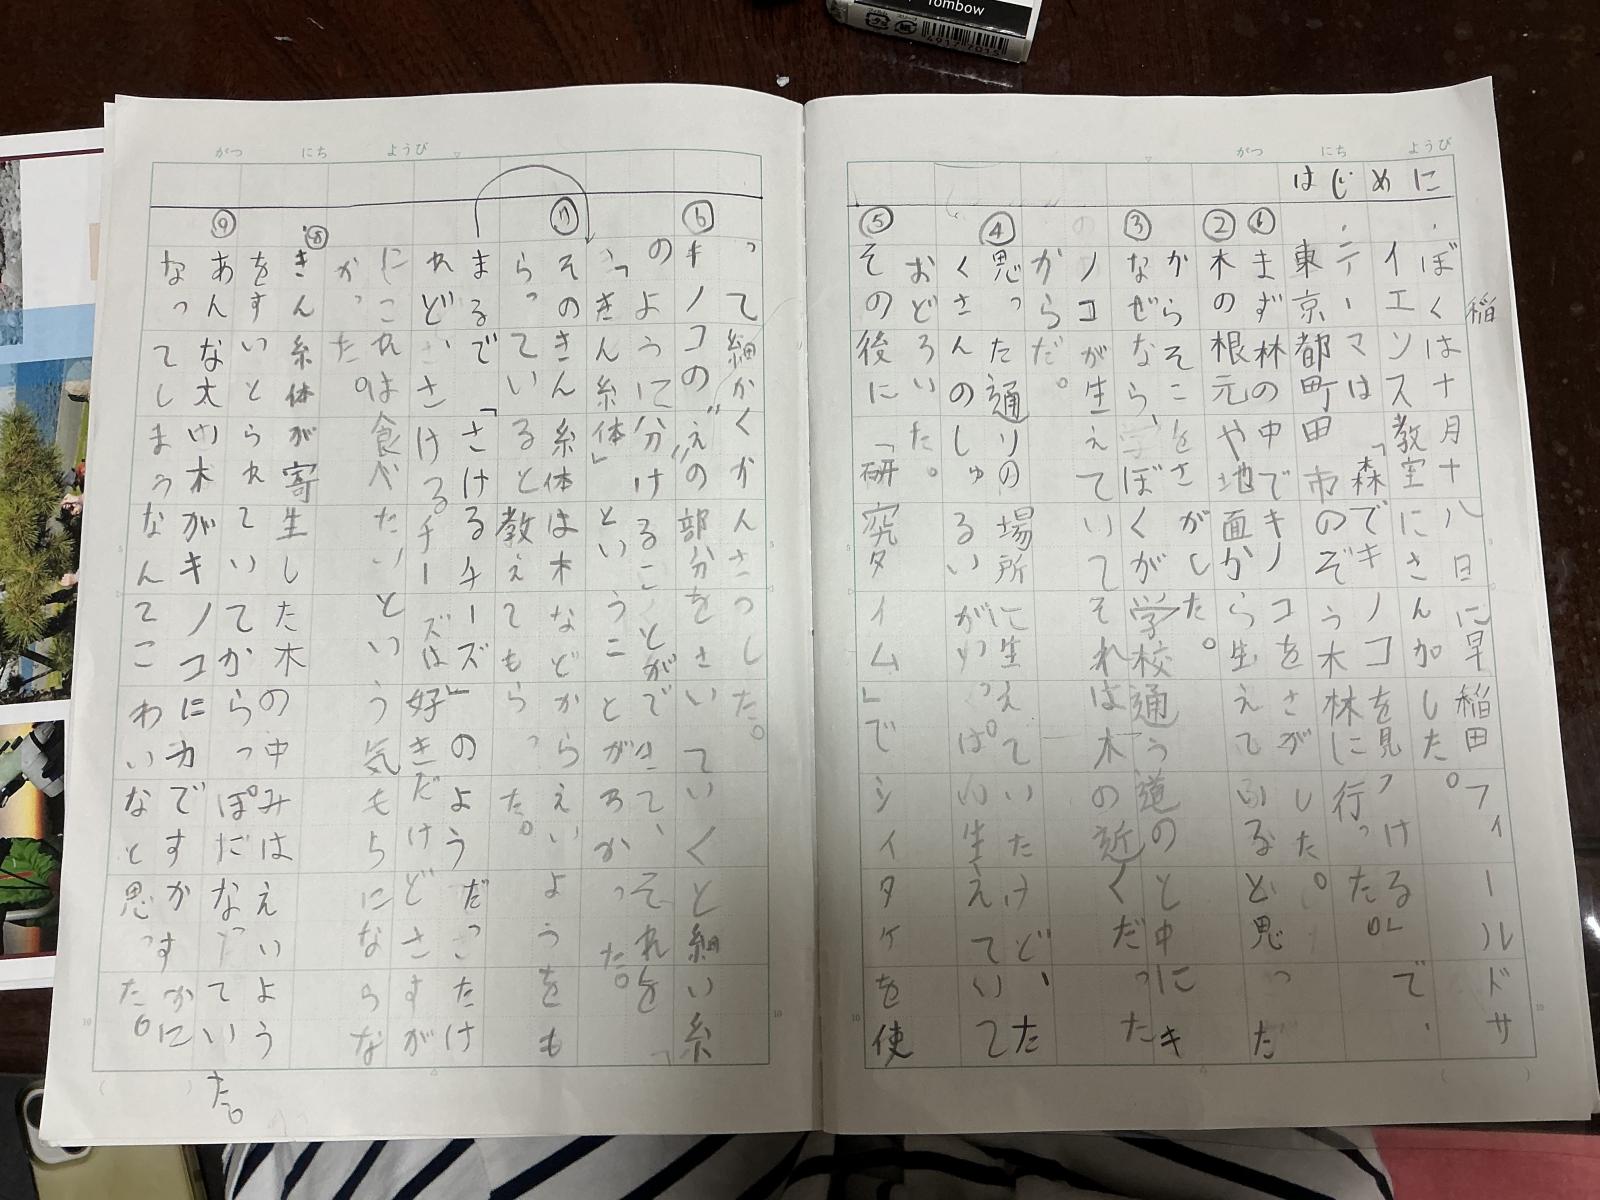 Tombow
4917701
がつ
にち
ようび
はじめに
稲
ぼくは十月十八日に早稲田フィールドサ
イエンス教室にさんかした。
テーマは「森でキノコを見つける。」で、
東京都町田市のぞう木林に行った。
⑥まず林の中でキノコをさがした。
②木の根元や地面から生えていると思った
からそこをさがした。
③なぜなら、ぼくが学校通う道のと中にキ
ノコが生えていてそれは木の近くだった
からだ。
④思った通りの場所に生えていたけど、た
くさんのしゅるいがいっぱい生えていて
おどろいた。
⑤その後に「研究タイム」でシイタケを使
がつ
にち
ようび
って細かくかんさつした。
⑥キノコの"え"の部分をさいていくと細い糸
のように分けることができて、それを
「きん糸体」ということがわかった。
⑦そのきん糸体は木などからえいようをも
らっていると教えてもらった。
まるで「さけるチーズ」のようだったけ
れど、さけるチーズは好きだけどさすが
にこれは食べたいという気もちにならな
かった。
⑧きん糸体が寄生した木の中みはえいよう
をすいとられていてからっぽだなっていた。
⑨あんな太い木がキノコにカですかすかに
なってしまうなんてこわいなと思った。